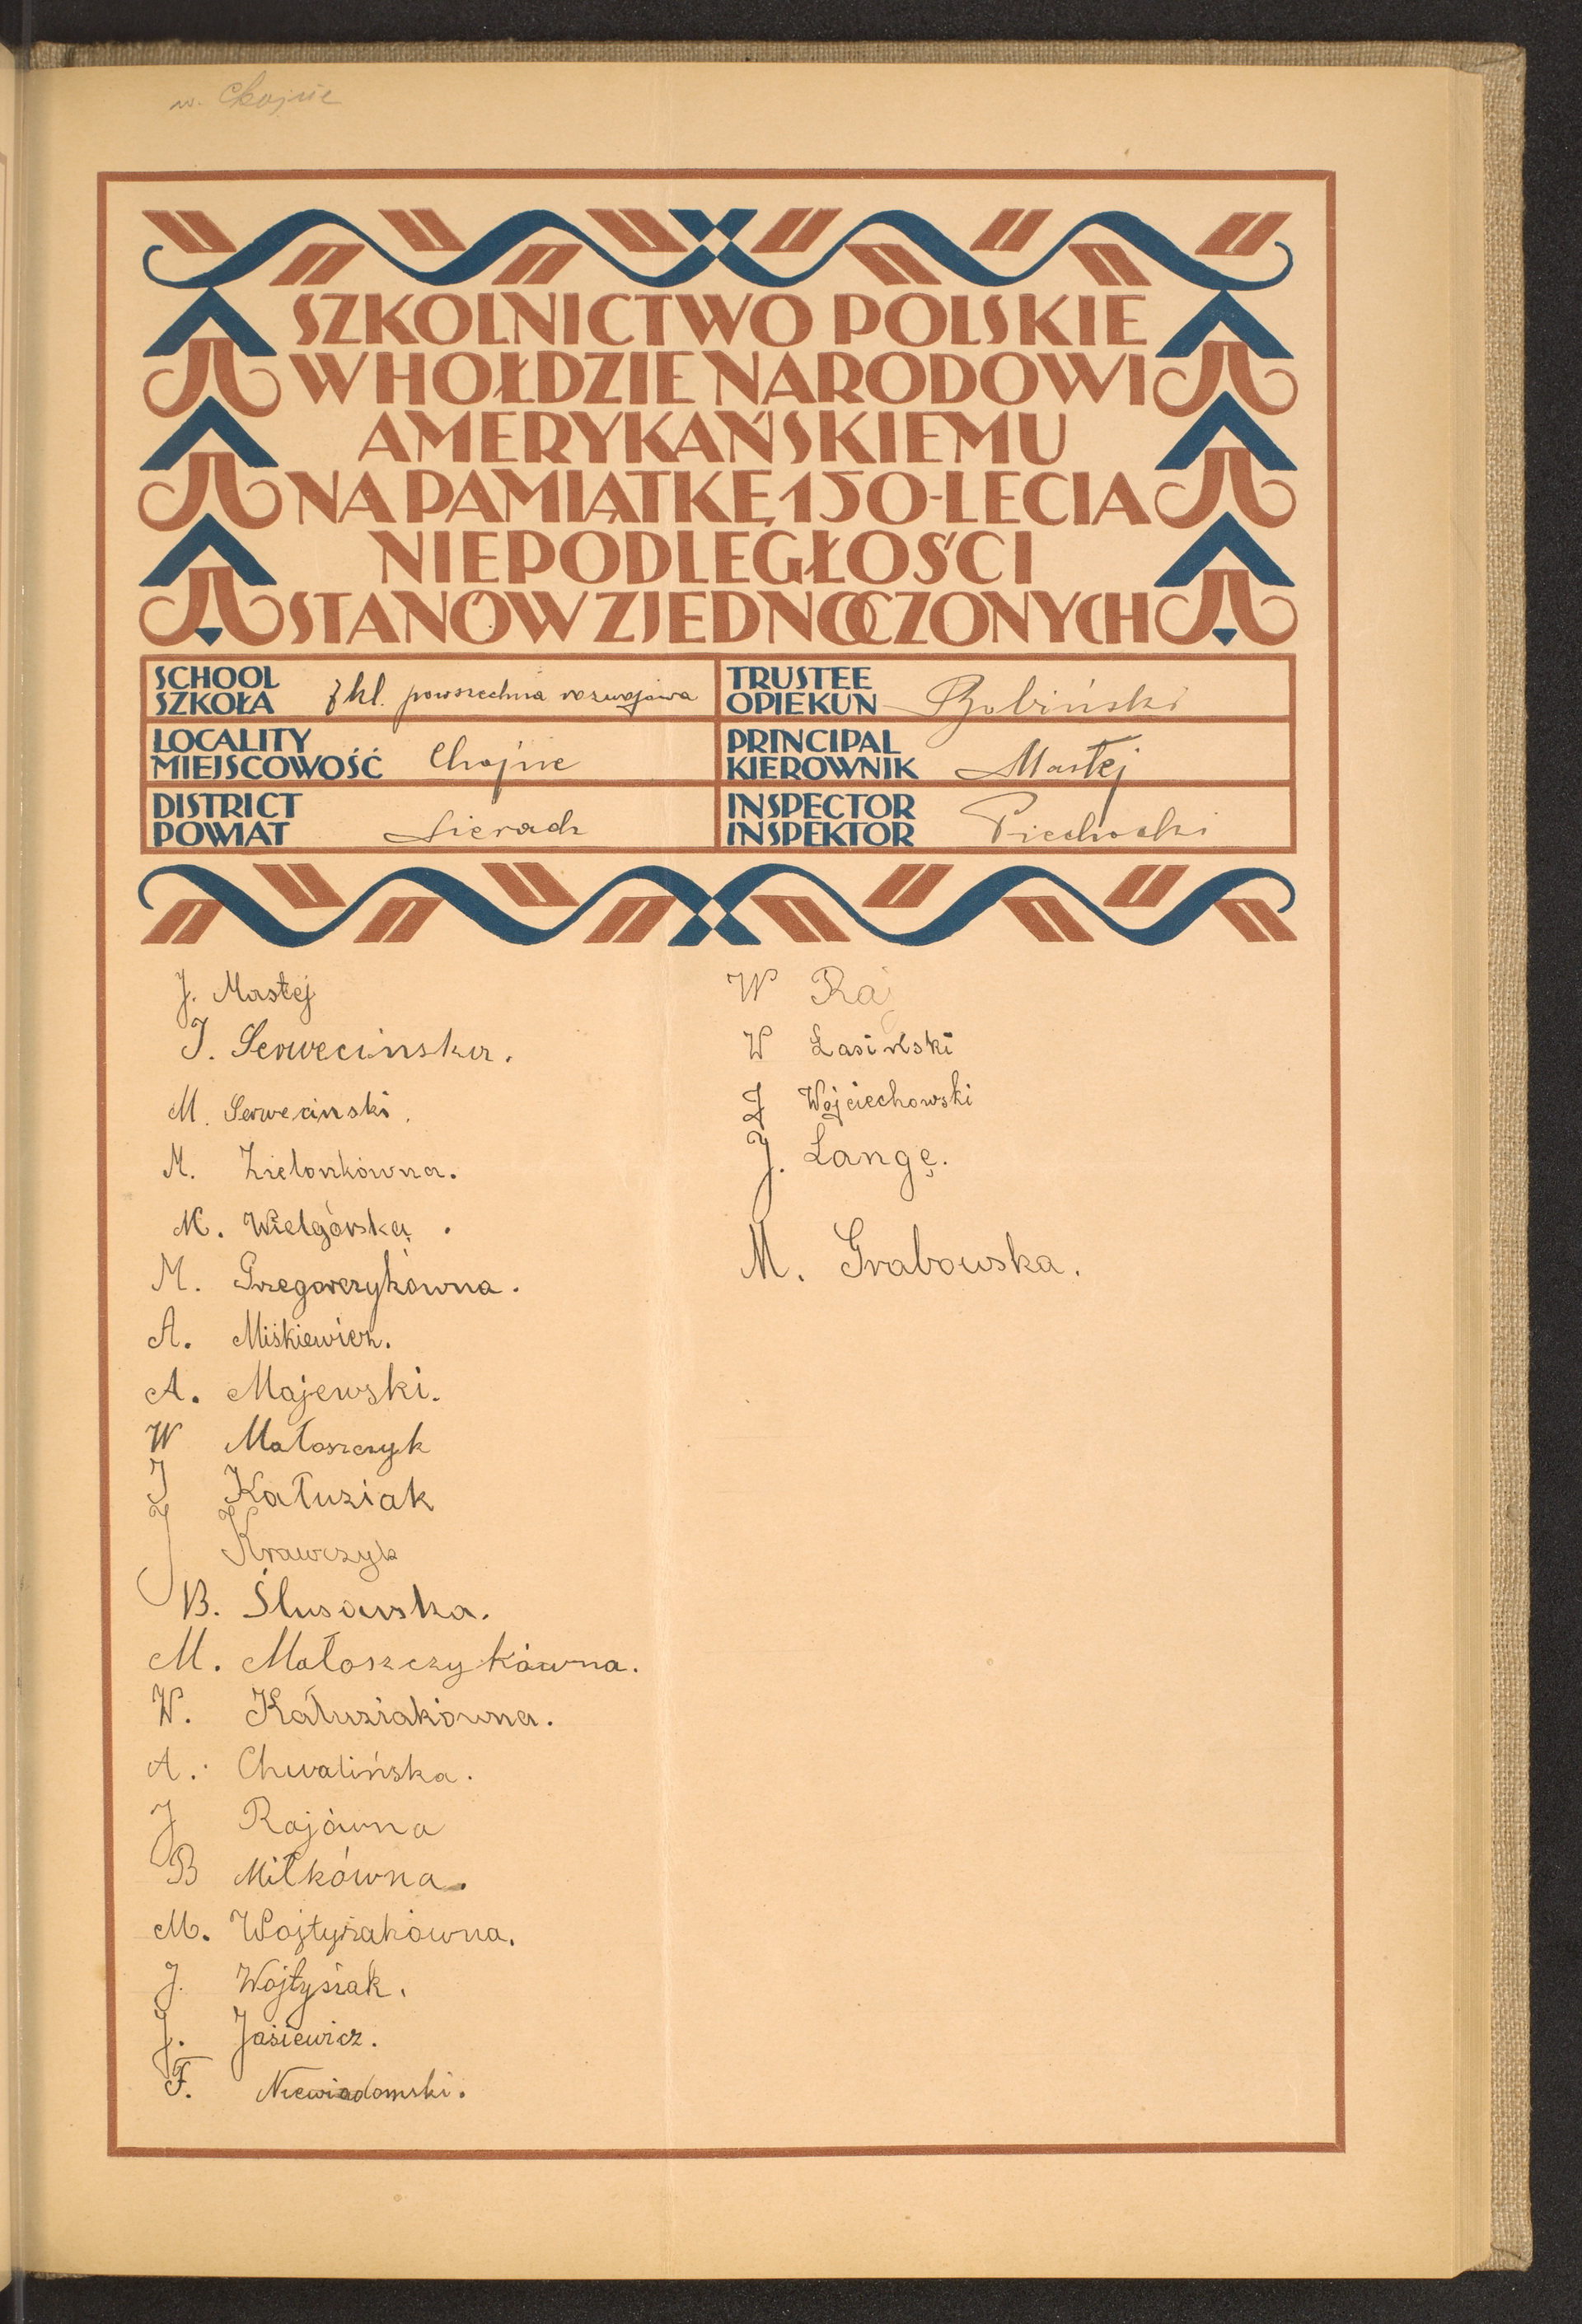 w. Chojne
SZKOLNICTWO POLSKIE
W HOŁDZIE NARODOWI
AMERYKAŃSKIEMU
NA PAMIĄTKĘ 150-LECIA
NIEPODLEGŁOŚCI
STANÓW ZJEDNOCZONYCH
SCHOOL
SZKOŁA
7 kl. powszechna rozwojowa
TRUSTEE
OPIEKUN
Bobiński
LOCALITY
MIEJSCOWOŚĆ
Chojne
PRINCIPAL
KIEROWNIK
Mastej
DISTRICT
POWIAT
Sieradz
INSPECTOR
INSPEKTOR
Piechocki
J. Mastej
J. Serwecinska.
M. Serwecinski.
M. Zielonkówna.
M. Wielgórska.
M. Grzegorczykówna.
A. Miśkiewicz.
A. Majewski.
W Matoszczyk
J Kałuziak
J Krawczyk
B. Ślusarska.
M. Małoszczykówna.
W. Kałuziakówna.
A. Chwalińska.
J Rajówna
B Miłkówna.
M. Wojtysiakówna.
J. Wojtysiak.
J. Jasiewicz.
F. Niewiadomski.
W Raj
W Łasiński
J Wojciechowski
J. Langę.
M. Grabowska.